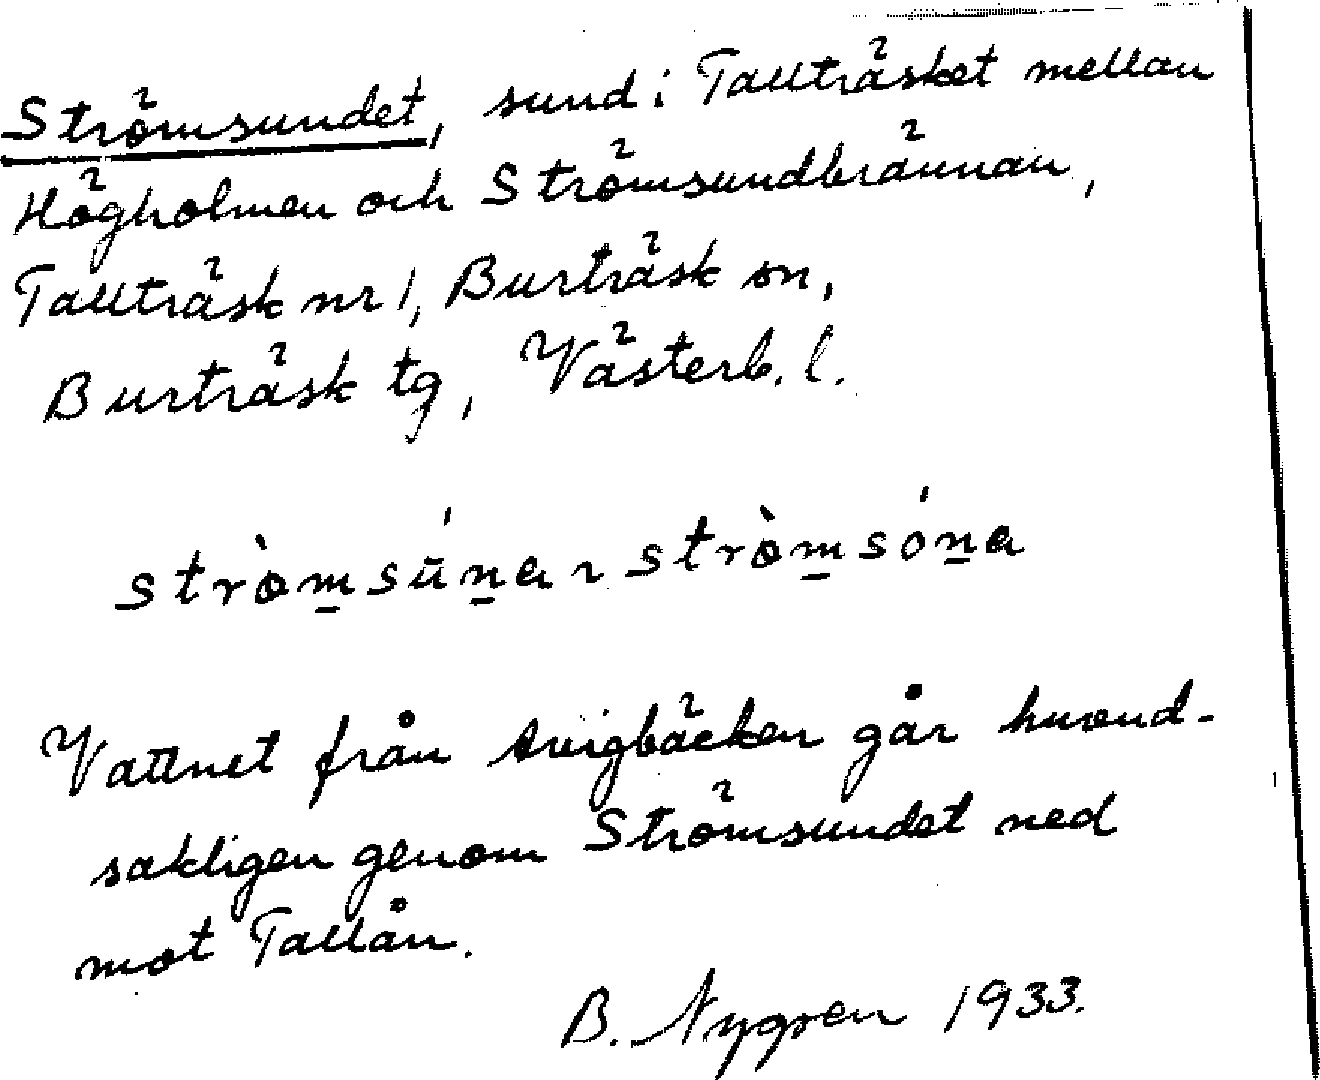 Strömsundet, sund i Tallträsket mellan
Högholmen och Strömsundbrännan,
Tallträsk nr 1, Burträsk sn,
Burträsk tg, Västerb. l.
strò̀m̲sū́n̲a ~ strò̀m̲són̲a
Vattnet från går huvud-
sakligen genom Strömsundet ned
mot Tallån.
B. Nygren 1933.